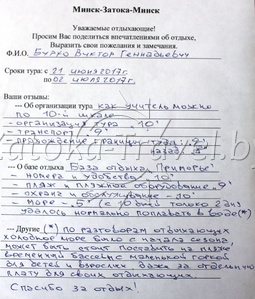 Минск-Затока-Минск
Уважаемые отдыхающие!
Просим Вас поделиться впечатлениями об отдыхе,
Выразить свои пожелания и замечания.
Ф.И.О. Бурко Виктор Геннадьевич
Срок тура: с 21 июня 2017г.
по 02 июля 2017г.
Ваши отзывы:
--- Об организации тура как учитель можно
по 10-й шкале
- организация тура - 10
- транспорт - 9
- прохождение границы туда: 9
назад: 8
--- О базе отдыха База отдыха Прибой
- номера и удобства - 10
- пляж и пляжное оборудование - 9
- охрана и обслуживание - 10
- море - 5 (с 10 дней только 2 дня
удалось нормально поплавать в воде (*)
--- Другие (*) По разговорам отдыхающих
холодное море было с начала сезона
может быть стоит поставить на пляже
бассейн с маленькой горкой
для детей и взрослых даже за отдельную
плату для своих отдыхающих
Спасибо за отдых!